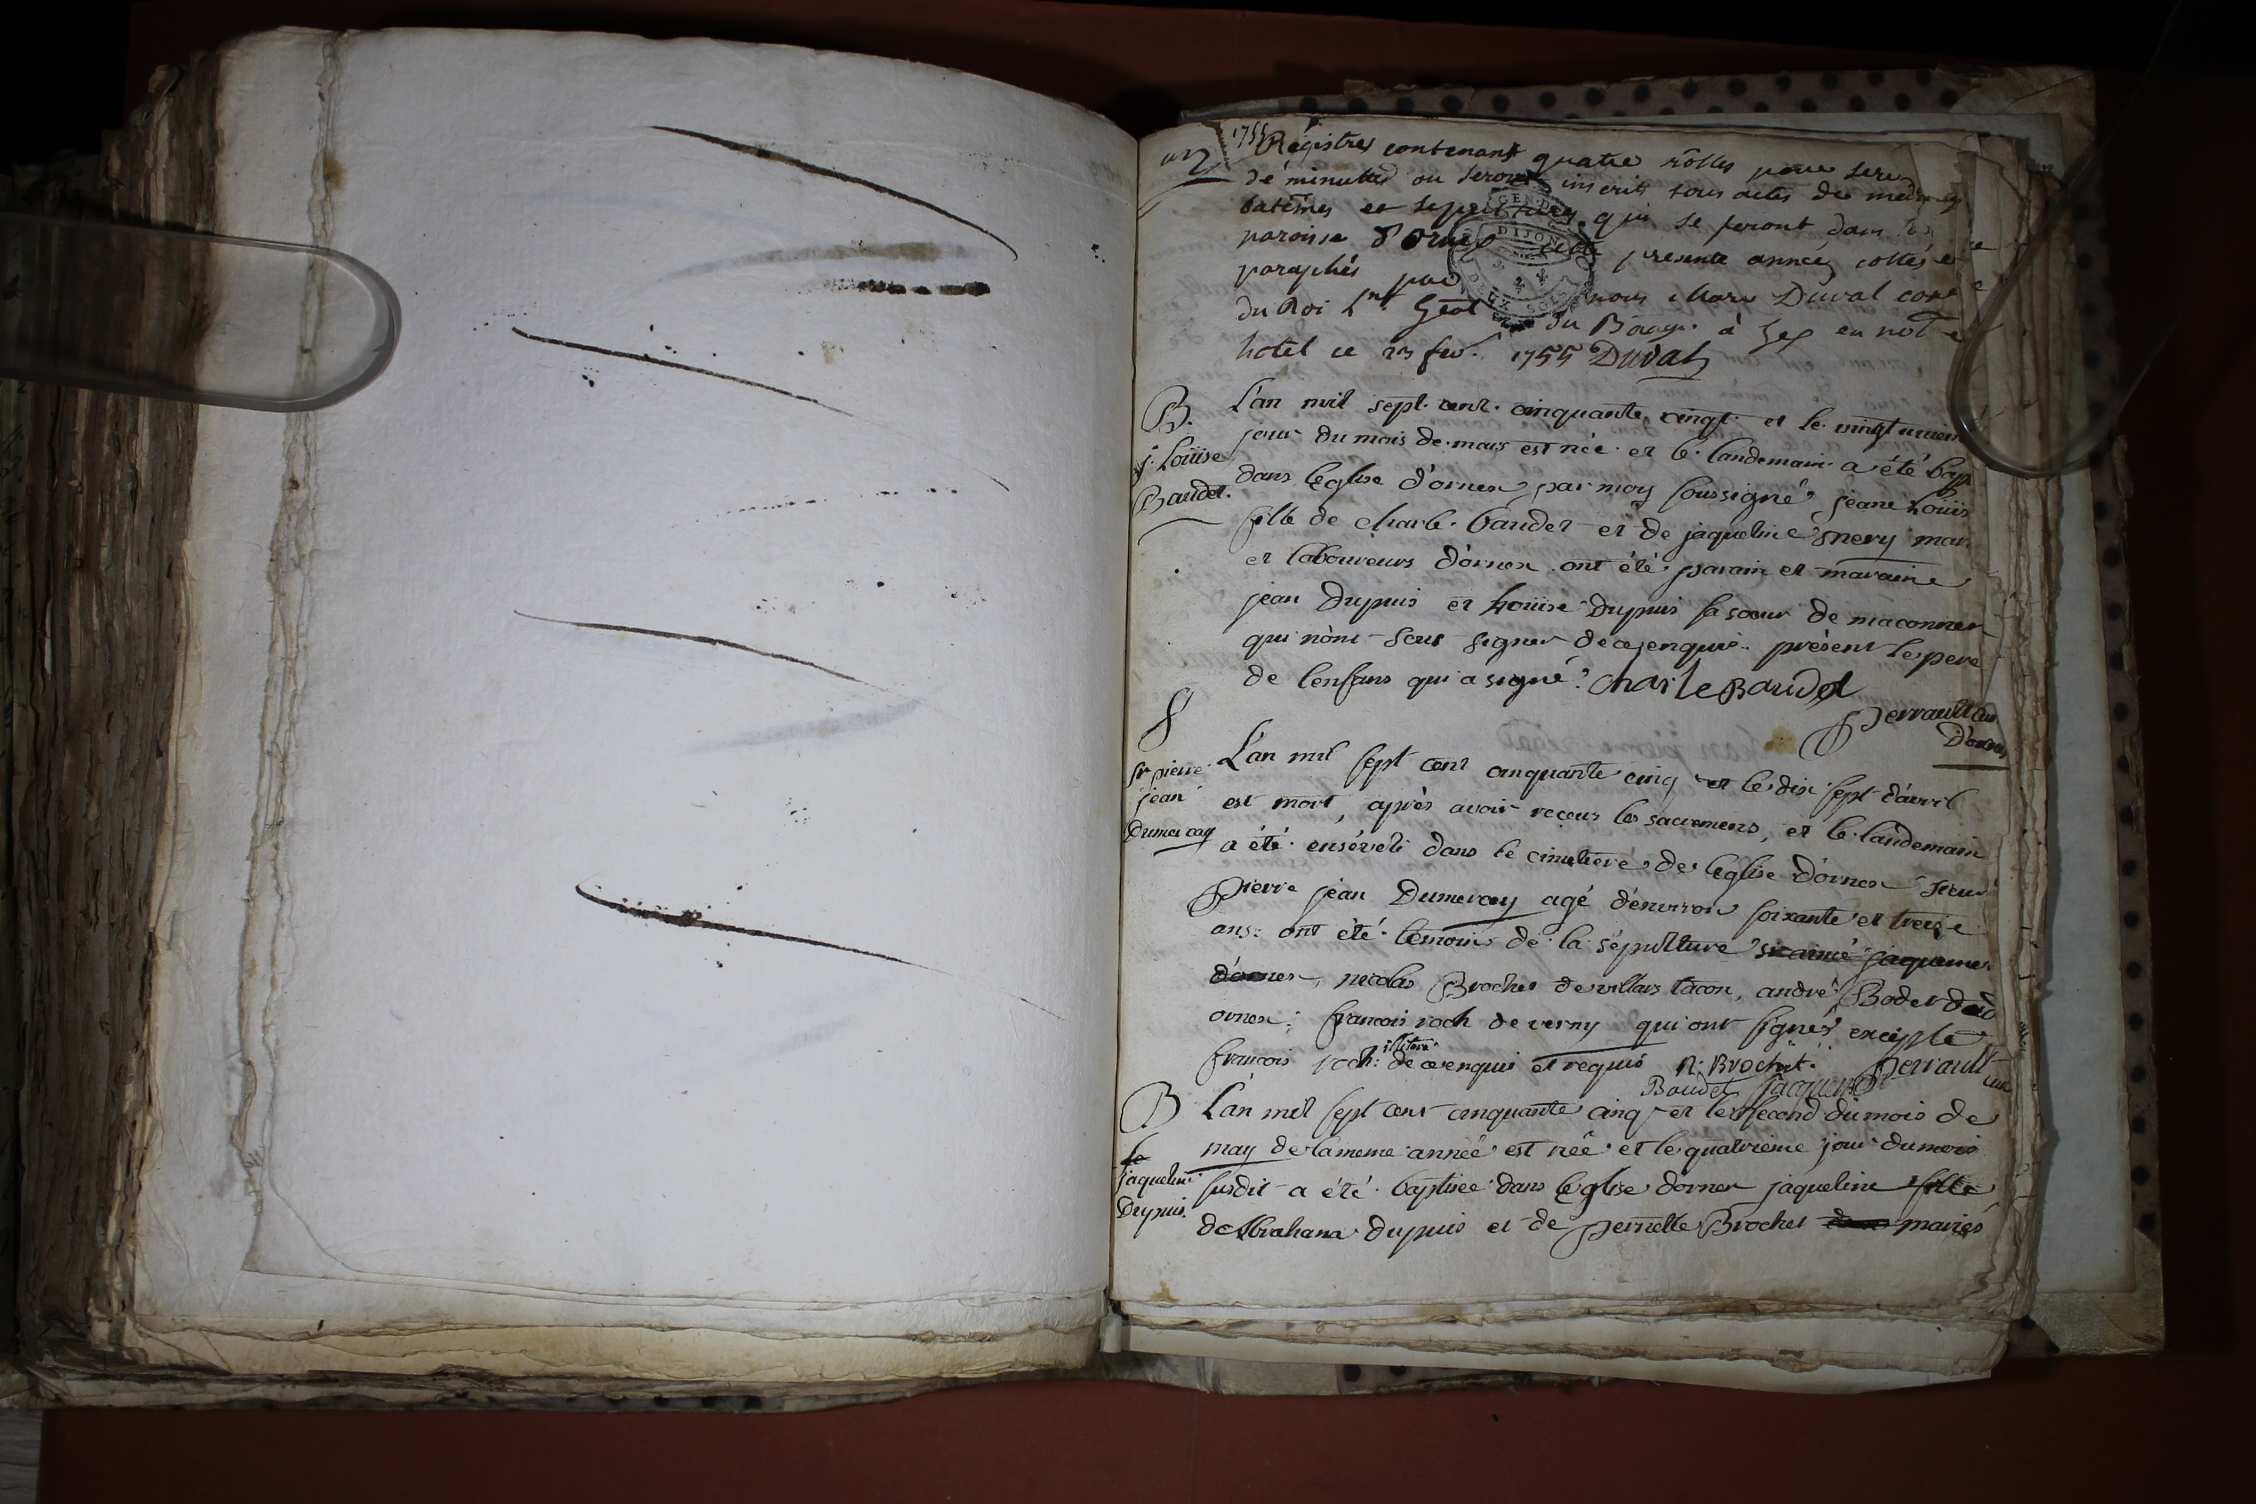 un
1755
Régistres contenant quatre rôlles pour servir
de minutes ou seront inscrits tous actes de mariages
batêmes et sepultures qui se feront dans la
paroisse d'Ornex cette presente année, cottés et
paraphés par nous Marc Duval cons
du Roi Lnt Géal du Baage à Gex en notre
hotel ce 23 fev. 1755 Duval
GEN. D
DIJON
DEUX SOLS
B.
j. Loüise
Baudet.
L'an mil sept cent cinquante cingt et le vingt unieme
jour du mois de mars est née et le landemain a été bap
dans leglise d'ornex par moy soussigné, jeane Loüis
fille de charle baudet et de jaqueline emery mar
et laboureurs d'ornex ont été parain et maraine
jean Dupuis et Loüise Dupuis sa soeur de maconnex
qui n'ont sçus signer de ce enquis présent les pere
de lenfans qui a signé. Charle Baudet
Perrault Curé
D'ornex
S
Sr pierre
jean
Dumercay
L'an mil sept cent cinquante cinq et le dix sept d'avril
est mort, après avoir reçeus les sacremens, et le landemain
a été enséveli dans le cimetiere de leglise d'ornex sieur
Pierre jean Dumercay agé d'environ soixante et treize
ans: ont été temoins de la sépulture sr aimé jaquemet
d'ornex, nicolas Brochet de villars tacon, andré Bodet
ornex: francois roch de verny qui ont signés excepté
francois roch: illiteré de ce enquis et requis N: Brochet. Perrault
Baudet Jacquemet curé
B
jaqueline
Dupuis.
L'an mil sept cent cinquante cinq et le second du mois de
may de la meme année est née et le quatrieme jour du mois
susdit a été baptisée dans leglise d'ornex jaqueline fille
de Abraham dupuis et de pernette Brochet mariés